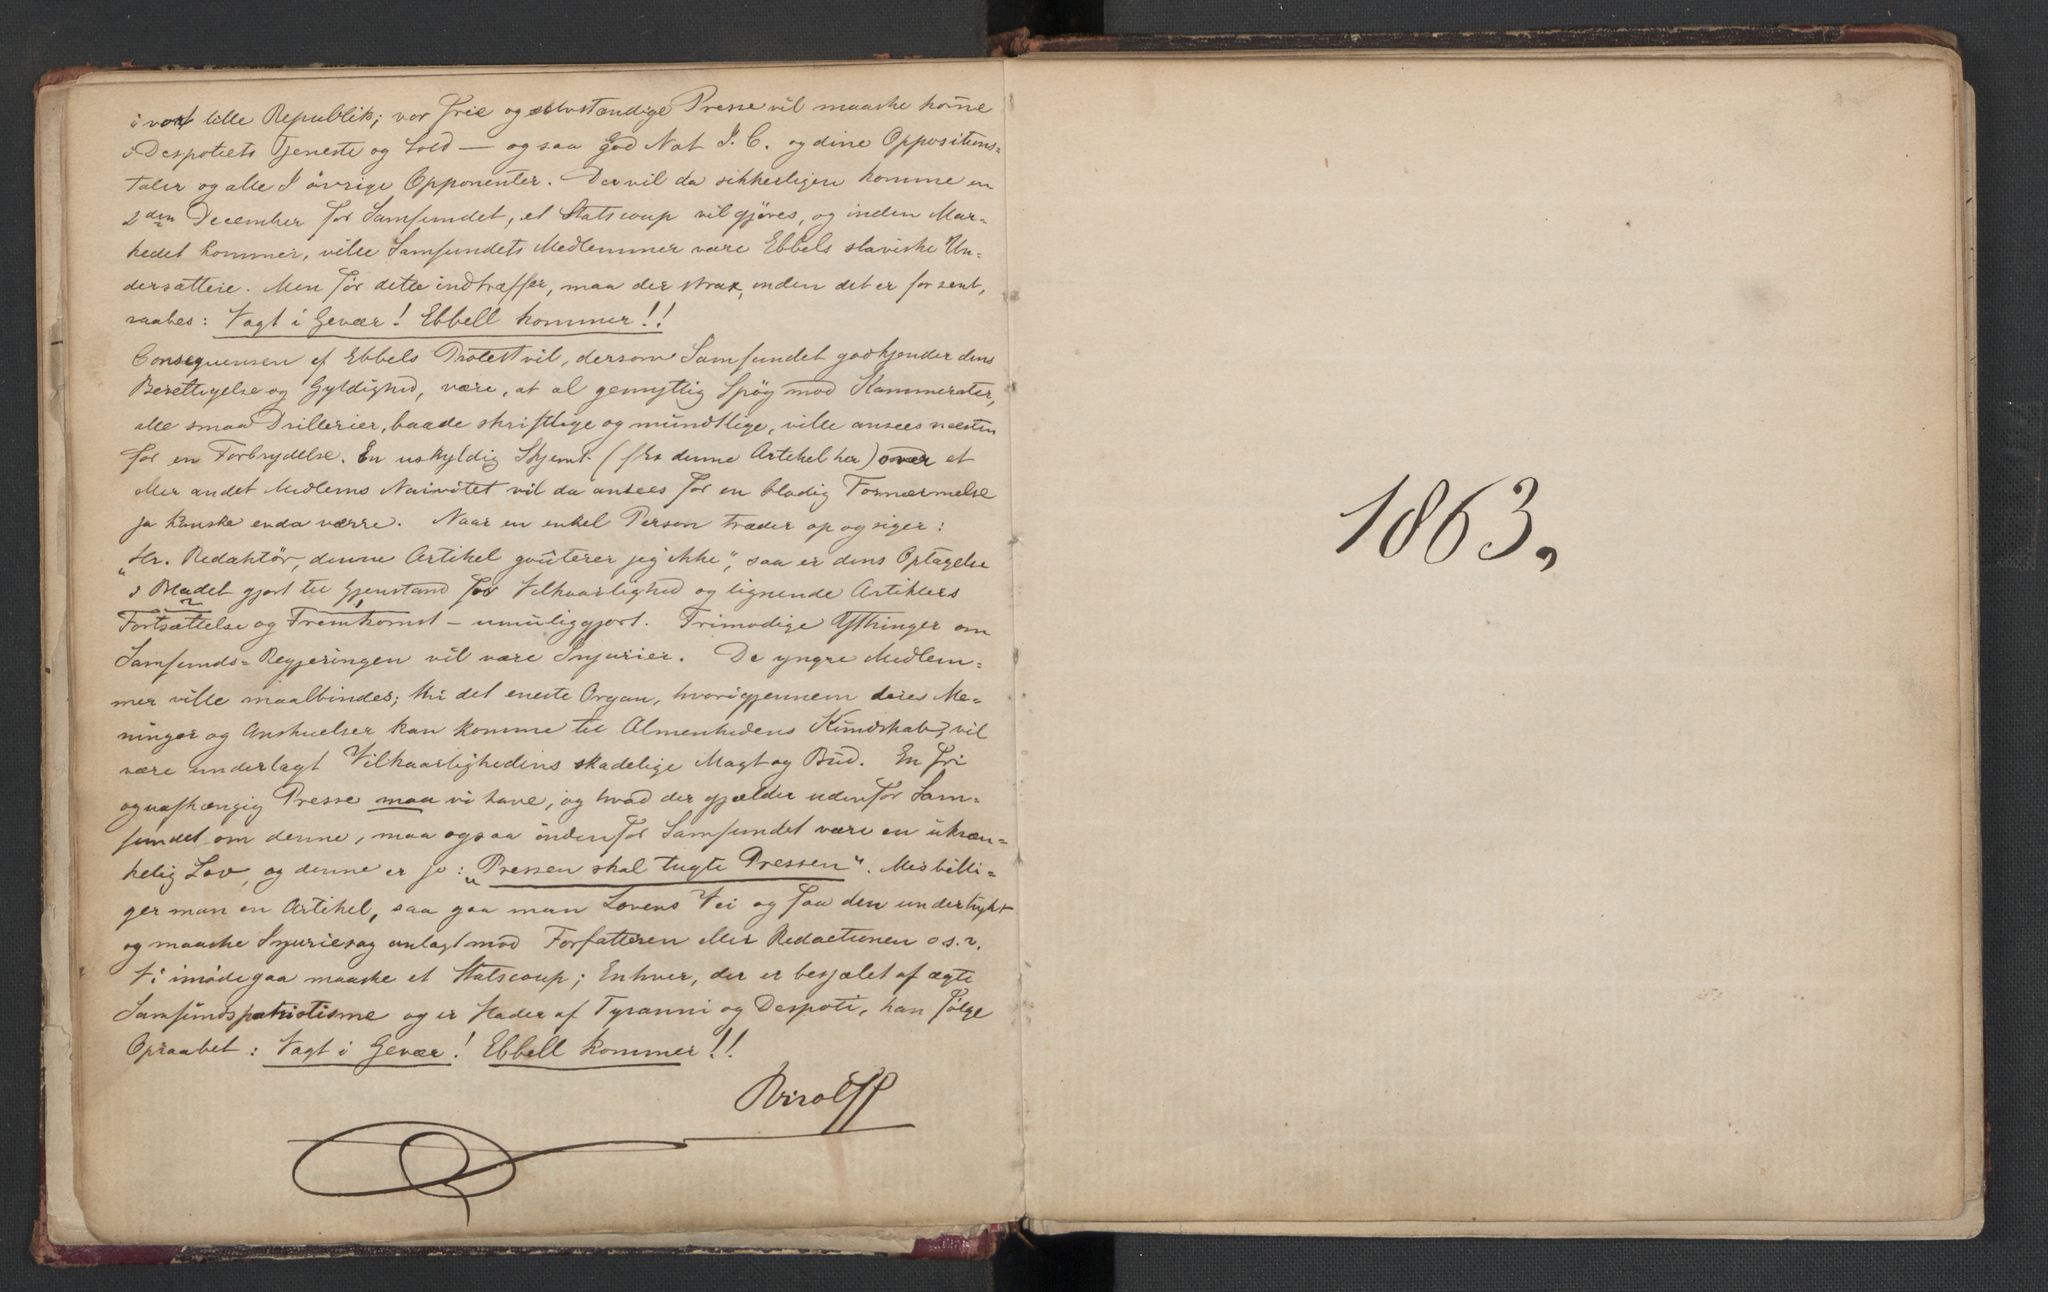 i vor lille Republik; vor frie og selvstændige Presse vil maaske kom̄e
i Despotiets Tjeneste og Sold — og saa god Nat I. C. og dine Oppositions-
taler og alle I øvrige Opponenter. Der vil da sikkerligen komme en
2den December for Samfundet, et Statscoup vil gjöres, og inden Mar-
kedet kommer, ville Samfundets Medlemmer være Ebbels slaviske Un-
dersatter. Men för dette indtræffer, maa der strax, inden det er for sent,
raabes: Vagt i Gevær! Ebbell kommer!!
Consequensen af Ebbels Protest vil, dersom Samfundet godkjender dens
Berettigelse og Gyldighed, være, at al gemytlig Spög mod Kammerater,
alle smaa Drillerier, baade skriftlige og mundtlige, ville ansees næsten
for en Forbrydelse. En uskyldig Skjemt (f Ex denne Artikel her) over et
eller andet Medlems Naivitet vil da ansees for en blodig Fornærmelse
ja kanske enda værre. Naar en enkel Person træder op og siger:
„Hr. Redaktör, denne Artikel goûterer jeg ikke", saa er dens Optagelse
i Bladet gjort til Gjenstand for Vilkaarlighed og lignende Artiklers
Fortsættelse og Fremkomst – umuliggjort. Frimodige Ytringer om
Samfunds-Regjeringen vil være Injurier. De yngre Medlem-
mer ville maalbindes; thi det eneste Organ, hvorigjennem deres Me-
ninger og Anskuelser kan komme til Almenhedens Kundskab, vil
være underlagt Vilkaarlighedens skadelige Magt og Bud. En fri
og uafhængig Presse maa vi have, og hvad der gjælder udenfor Sam-
fundet om denne, maa ogsaa indenfor Samfundet være en ukræn-
kelig Lov, og denne er jo: „Pressen skal tugte Pressen". Misbilli-
ger man en Artikel, saa gaa man Lovens Vei og faa den undertrykt
og maaske Injuriesag anlagt mod Forfatteren eller Redactionen o.s.v.
Vi imödegaa maaske et Statscoup; Enhver, der er besjælet af ægte
Samfundspatriotisme og er Hader af Tyranni og Despoti, han fölge
Opraabet: Vagt i Gevær! Ebbell kommer!!
1863,